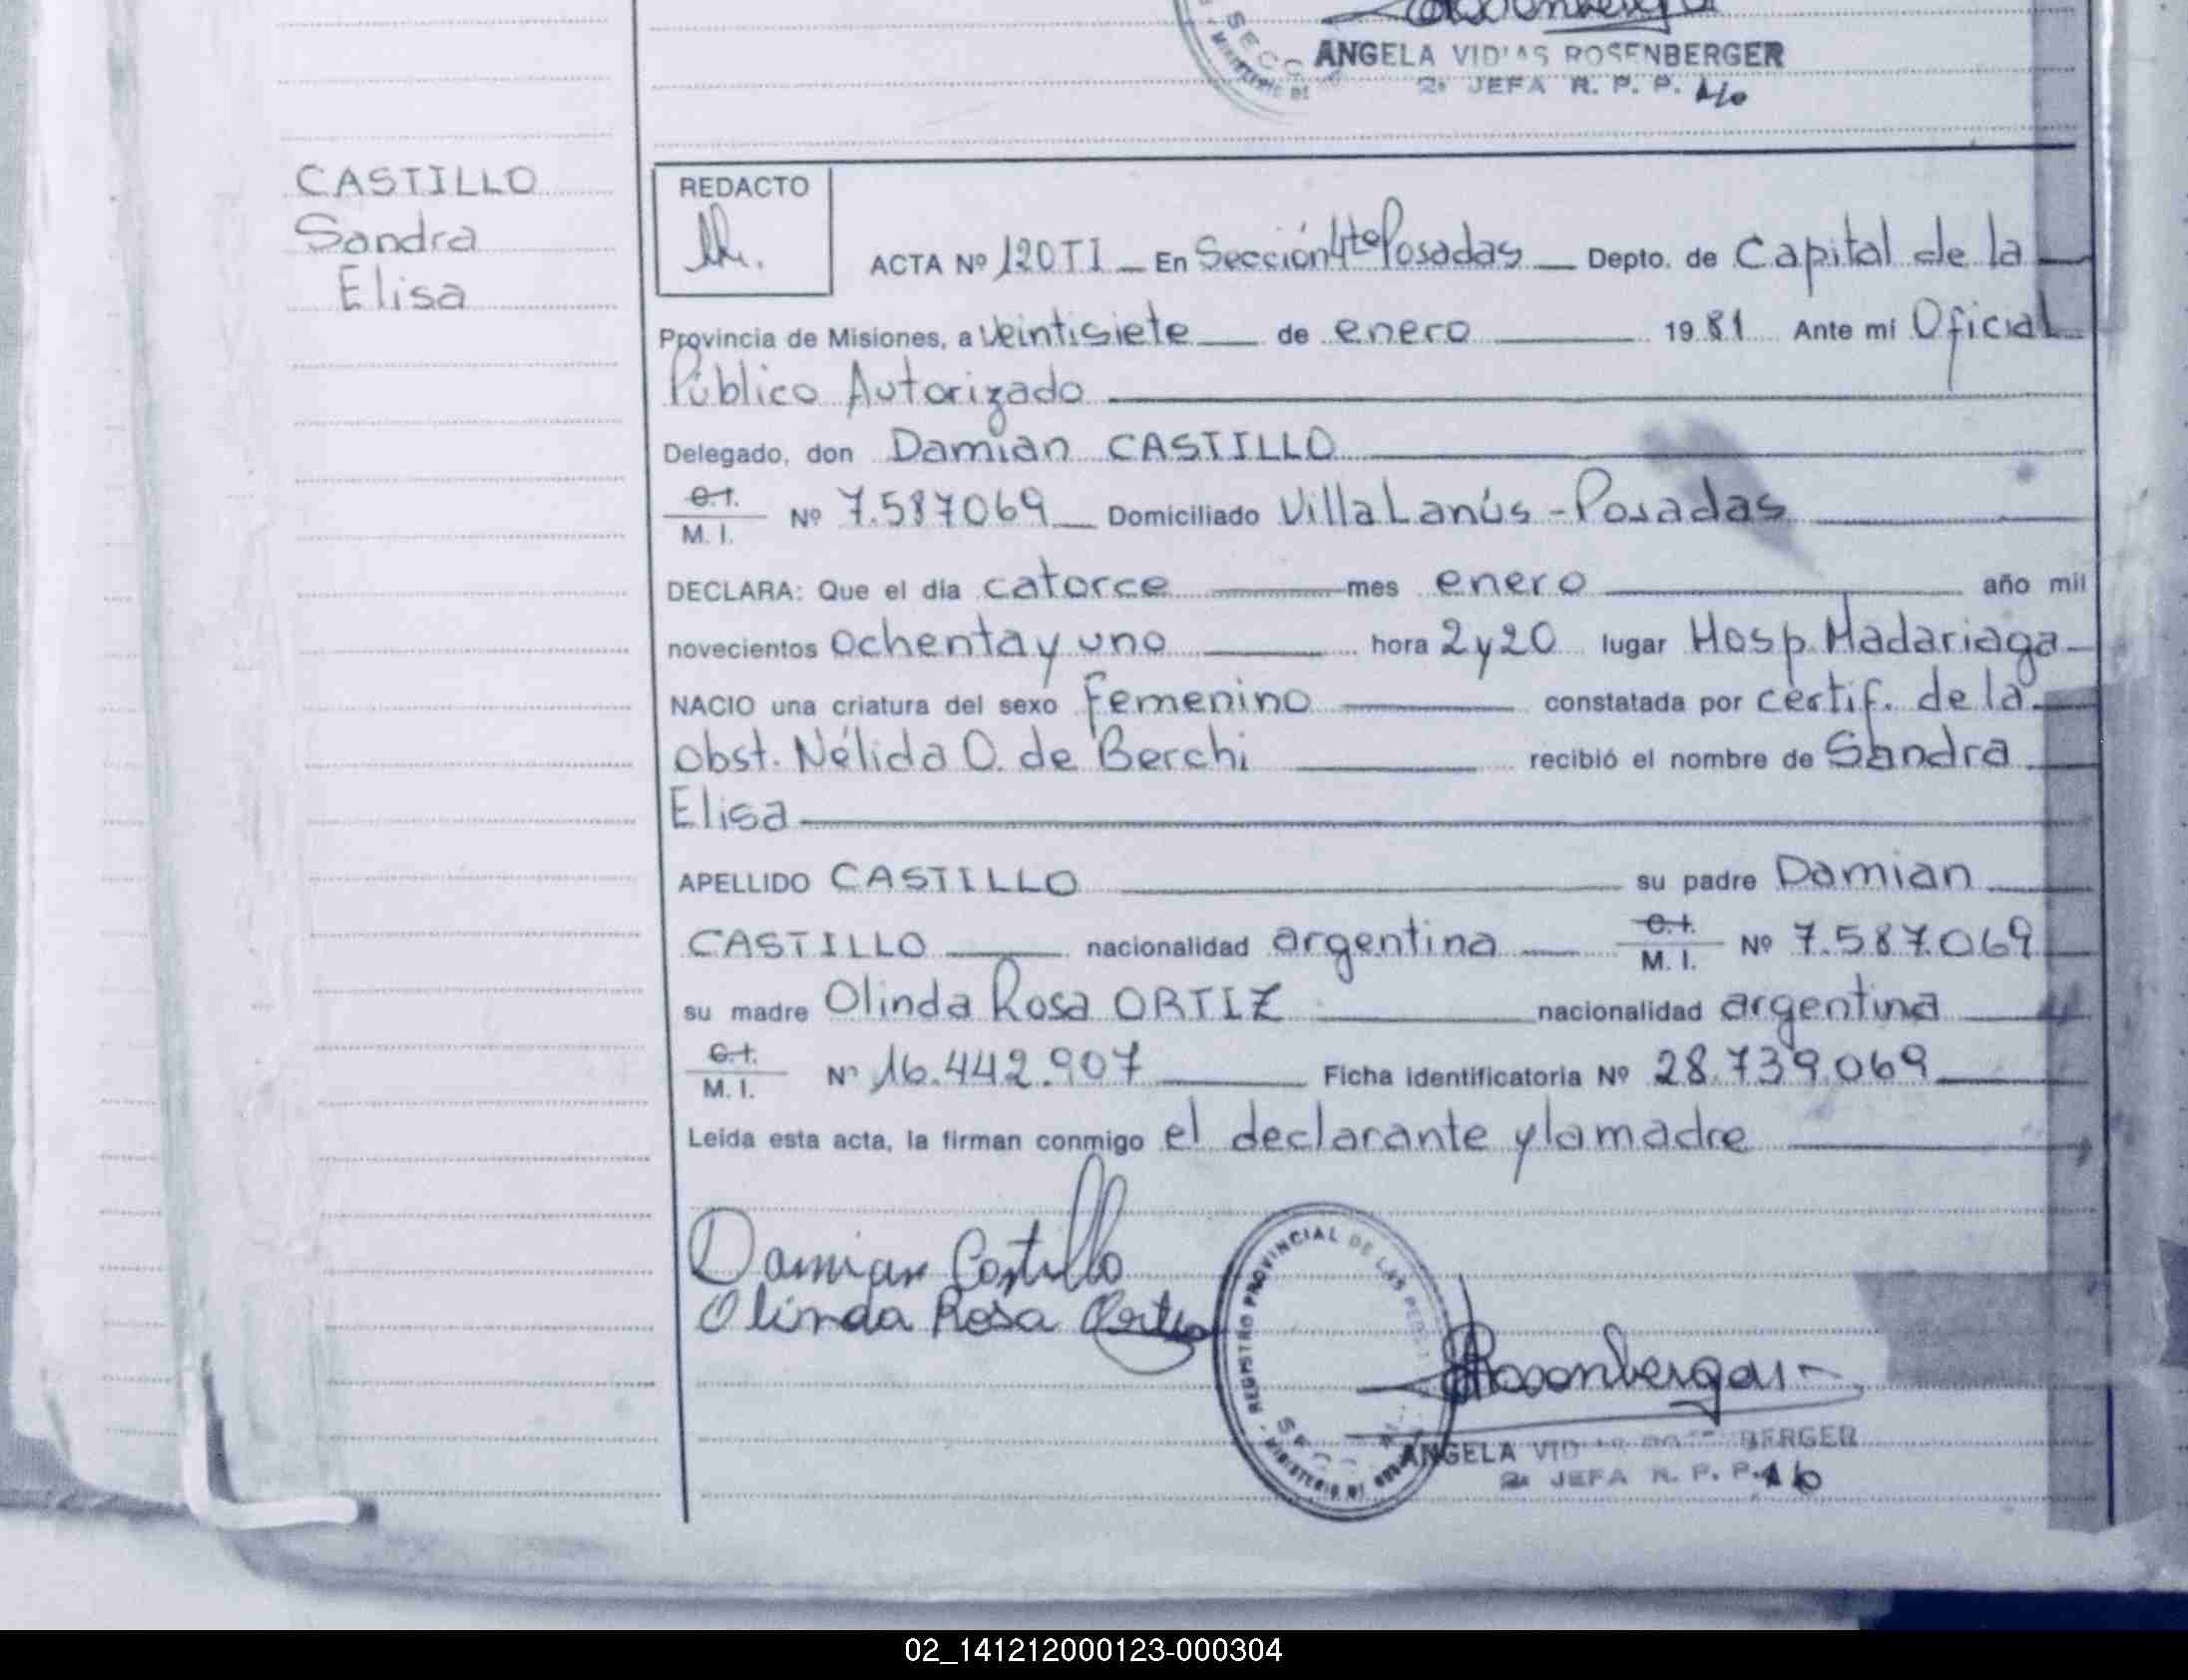 ANGELA VIDAS ROSENBERGER
2ª JEFA R. P. P.
CASTILLO
Sandra
Elisa
REDACTO
ACTA Nº 120TI En Sección 4ta Posadas Depto. de Capital de la
Provincia de Misiones, a veintisiete de enero 1981 Ante mí Oficial
Público Autorizado
Delegado, don Damian CASTILLO
C.I.
M. I. Nº 7.587069 Domiciliado Villa Lanús - Posadas
DECLARA: Que el día catorce mes enero año mil
novecientos ochenta y uno hora 2 y 20 lugar Hosp. Madariaga
NACIO una criatura del sexo femenino constatada por certif. de la
obst. Nélida O. de Berchi recibió el nombre de Sandra
Elisa
APELLIDO CASTILLO su padre Damian
CASTILLO nacionalidad argentina C.I. M. I. Nº 7.587.069
su madre Olinda Rosa ORTIZ nacionalidad argentina
C.I.
M. I. Nº 16.442.907 Ficha identificatoria Nº 28.739.069
Leída esta acta, la firman conmigo el declarante y la madre
Damian Castillo
Olinda Rosa Ortiz
REGISTRO PROVINCIAL DE LAS
Rosenberger
ANGELA VID BERGER
2ª JEFA R. P. P.
02_141212000123-000304